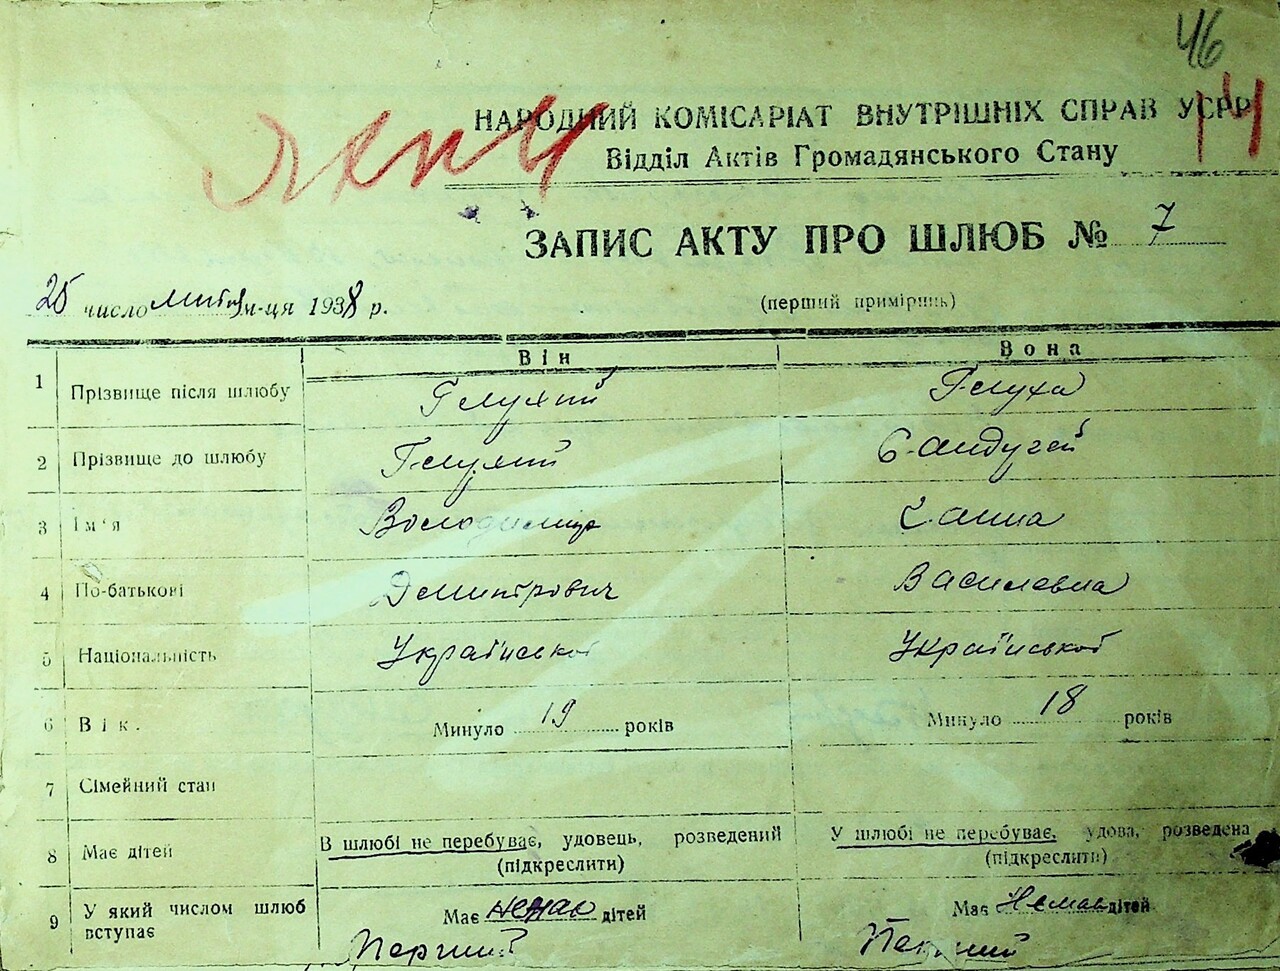 46
14
НАРОДНИЙ КОМІСАРІАТ ВНУТРІШНІХ СПРАВ УСРР
Відділ Актів Громадянського Стану
ЗАПИС АКТУ ПРО ШЛЮБ № 7
25 число м-ця 1938 р. (перший примірник)
Він Вона
1 Прізвище після шлюбу Глухий Глуха
2 Прізвище до шлюбу Глухий
3 Ім'я Володимир Ганна
4 По-батькові Дмитрович Василевна
5 Національність Української Української
6 Вік. Минуло 19 років Минуло 18 років
7 Сімейний стан
8 Має дітей В шлюбі не перебуває, удовець, розведений У шлюбі не перебуває, удова, розведена
(підкреслити) (підкреслити)
9 У який числом шлюб вступає Має немає дітей Має Немає дітей
Перший Перший